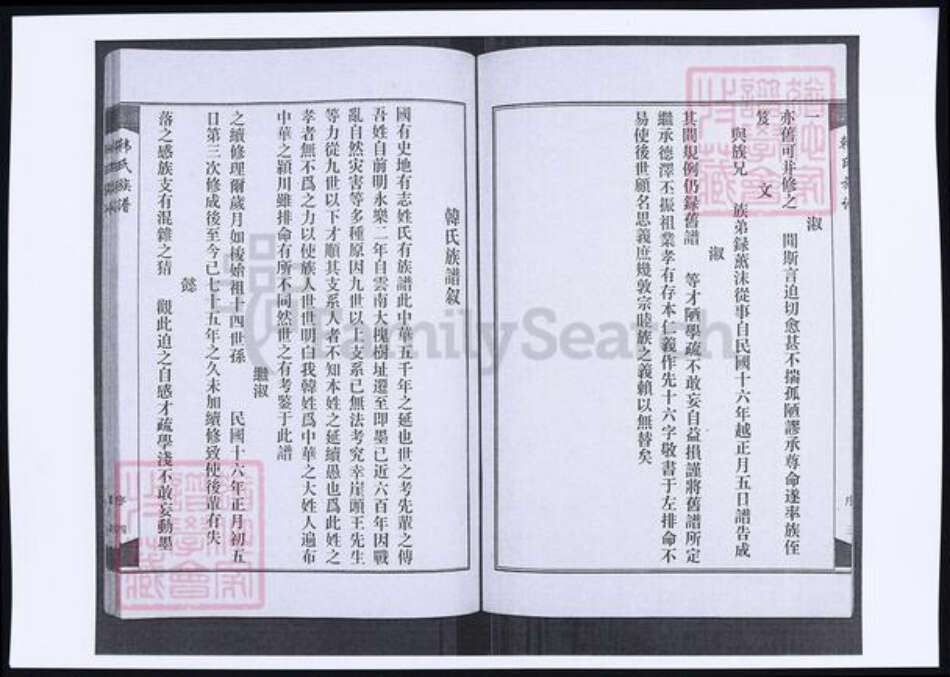 一 淑
亦舊可并修之 聞斯言迫切愈甚不揣孤陋謬承尊命遂率族侄
笈 文
與族兄 族弟録薫沫從事自民國十六年越正月五日譜告成
淑
其間規例仍録舊譜 等才陋學疏不敢妄自益損謹將舊譜所定
繼承德澤不振祖業孝有存本仁義作先十六字敬書于左排命不
易使後世顧名思義庶幾敦宗睦族之義賴以無替矣
韓氏族譜叙
國有史地有志姓氏有族譜此中華五千年之延也世之考先輩之傳
吾姓自前明永樂二年自雲南大槐樹址遷至即墨已近六百年因戰
亂自然灾害等多種原因九世以上支系已無法考究幸崖頭王先生
等力從九世以下才順其支系人者不知本姓之延續愚也爲此姓之
孝者無不爲之力以使族人世世明白我韓姓爲中華之大姓人遍布
中華之潁川雖排命有所不同然世之有考鑒于此譜
繼淑
之續修理爾歲月如梭始祖十四世孫 民國十六年正月初五
日第三次修成後至今已七十五年之久未加續修致使後輩有失
懿
落之感族支有混雜之猜 觀此迫之自感才疏學淺不敢妄動墨
韓氏族譜
序
FamilySearch